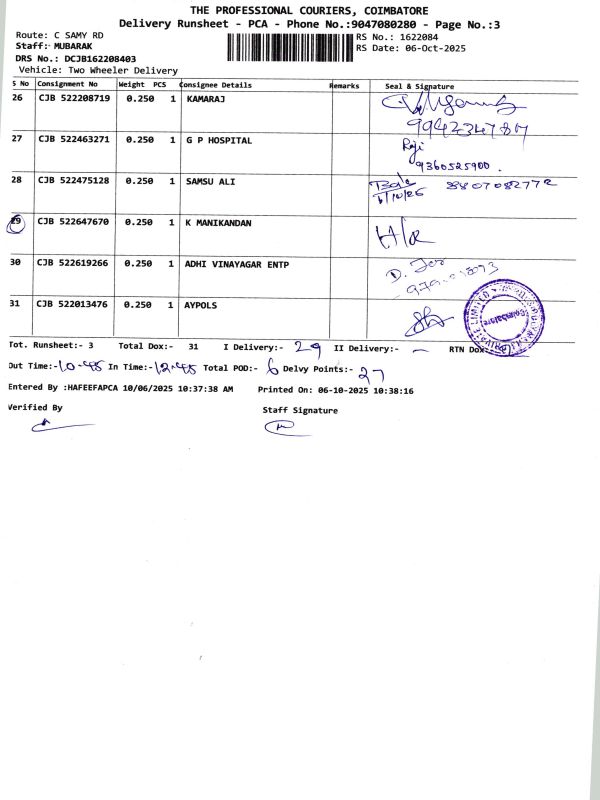 THE PROFESSIONAL COURIERS, COIMBATORE
Delivery Runsheet - PCA - Phone No.:9047080280 - Page No.:3
Route: C SAMY RD
RS No.: 1622084
Staff: MUBARAK
RS Date: 06-Oct-2025
DRS No.: DCJB162208403
Vehicle: Two Wheeler Delivery
S No Consignment No Weight PCS Consignee Details Remarks Seal & Signature
26 CJB 522208719 0.250 1 KAMARAJ
27 CJB 522463271 0.250 1 G P HOSPITAL
9360525900.
28 CJB 522475128 0.250 1 SAMSU ALI 8807082772
29 CJB 522647670 0.250 1 K MANIKANDAN
30 CJB 522619266 0.250 1 ADHI VINAYAGAR ENTP
31 CJB 522013476 0.250 1 AYPOLS
Tot. Runsheet:- 3 Total Dox:- 31 I Delivery:- 29 II Delivery:- RTN Dox:
Out Time:- 10-45 In Time:- 12-45 Total POD:- 6 Delvy Points:- 27
Entered By :HAFEEFAPCA 10/06/2025 10:37:38 AM Printed On: 06-10-2025 10:38:16
Verified By
Staff Signature